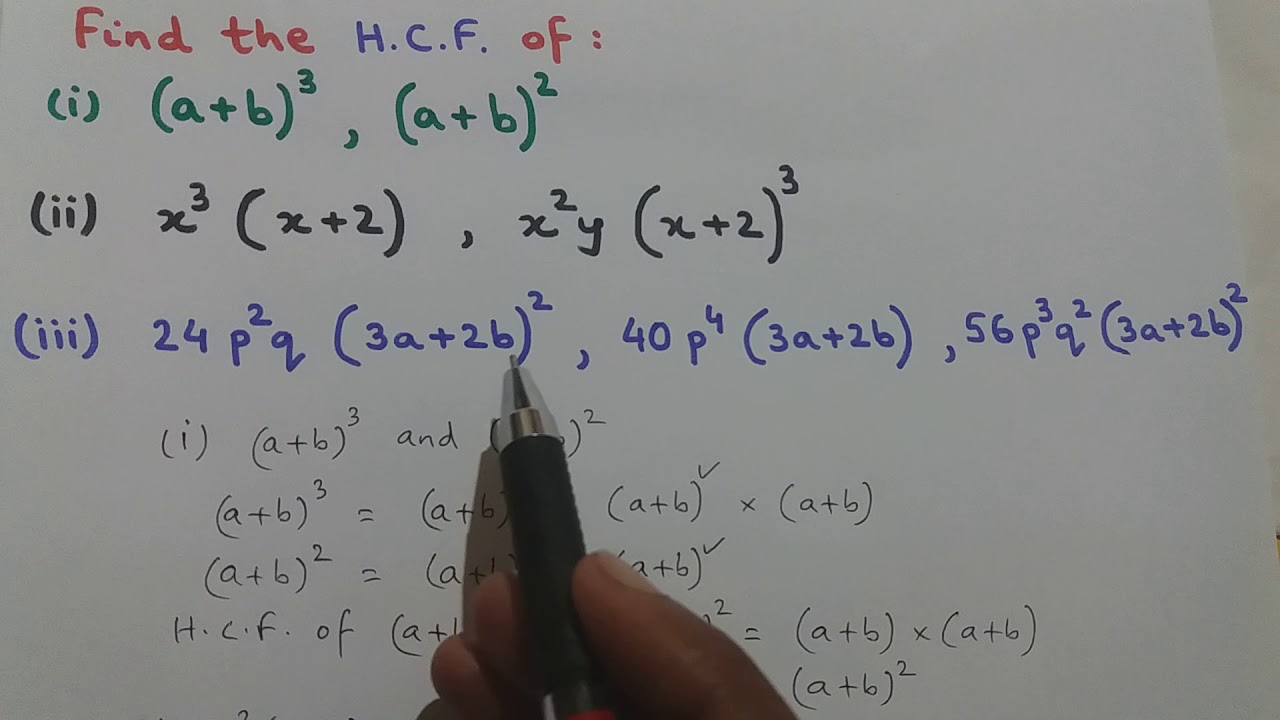 Find the H.C.F. of :
(i) (a+b)³ , (a+b)²
(ii) x³ (x+2) , x²y (x+2)³
(iii) 24 p²q (3a+2b)² , 40 p⁴ (3a+2b) , 56p³q² (3a+2b)²
(i) (a+b)³ and ( )²
(a+b)³ = (a+b) (a+b)✓ × (a+b)
(a+b)² = (a+b) (a+b)✓
H.C.F. of (a+b ² = (a+b) × (a+b)
(a+b)²